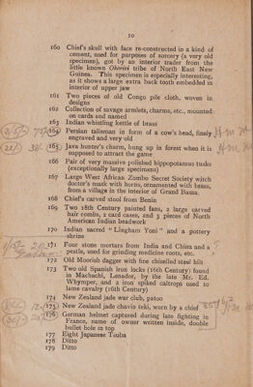 10
160 Chief's skull with face re-constructed in a kind of
cement, used for purposes of sorcery (a very old
specimen), got by an interior trader from the
little known Okenini tribe of North East New
Guinea. This specimen is especially interesting,
as it shows a large extra back tooth embedded in
interior of upper jaw
161 Two pieces of old Congo pile cloth, woven in
designs
162 Collection of savage armlets, charms, etc., mounted
on cards and named
163 Indian whistling kettle of brass
164 Persian talisman in form of a cow's head, finely
engraved and very old
165 Java hunter's charm, hung up in forest when it is
supposed to attract the game
166 Pair of very massive polished hippopotamus tusks
(exceptionally large specimens)
167 Large West African Zombo Secret Society witch
doctor's mask with horns, ornamented with brass,
from a village in the interior of Grand Bassa.
168 Chief's carved stool from Benin
169 Two 18th century painted fans, 2 large carved
hair combs, 2 card cases, and 3 pieces of North
American Indian beadwork
170 Indian sacred "Lingham Yoni" and a pottery
shrine
171 Four stone mortars from India and China and a
pestle, used for grinding medicine roots, etc.
172 Old Moorish dagger with fine chiselled steel hilt
173 Two old Spanish iron locks (16th Century) found
in Machachi, Lenador, by the late Mr. Ed.
Whymper, and 2 iron spiked caltrops used to
lame cavalry (16th Century)
174 New Zealand jade war club, patoo
175 New Zealand jade charm teki, worn by a chief
176 German helmet captured during late fighting in
France, name of owner written inside, double
bullet hole in top
177 Eight Japanese Tsuba
178 Ditto
179 Ditto